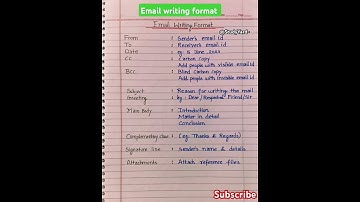 Email writing format
Email Writing Format
From : Sender's email id
To : Receiver's email id
Date : eg. 5 June
CC : Carbon Copy
Add people with visible email id
Bcc : Blind Carbon Copy
Add people with invisible email id
Subject : Reason for writing the mail
Greeting : Eg: Dear/Respected/Friend/Sir
Main Body : Introduction
Matter in detail
Conclusion
Complementary close : (eg. Thanks & Regards)
Signature line : Sender's name & details
Attachments : Attach reference files.
Subscribe